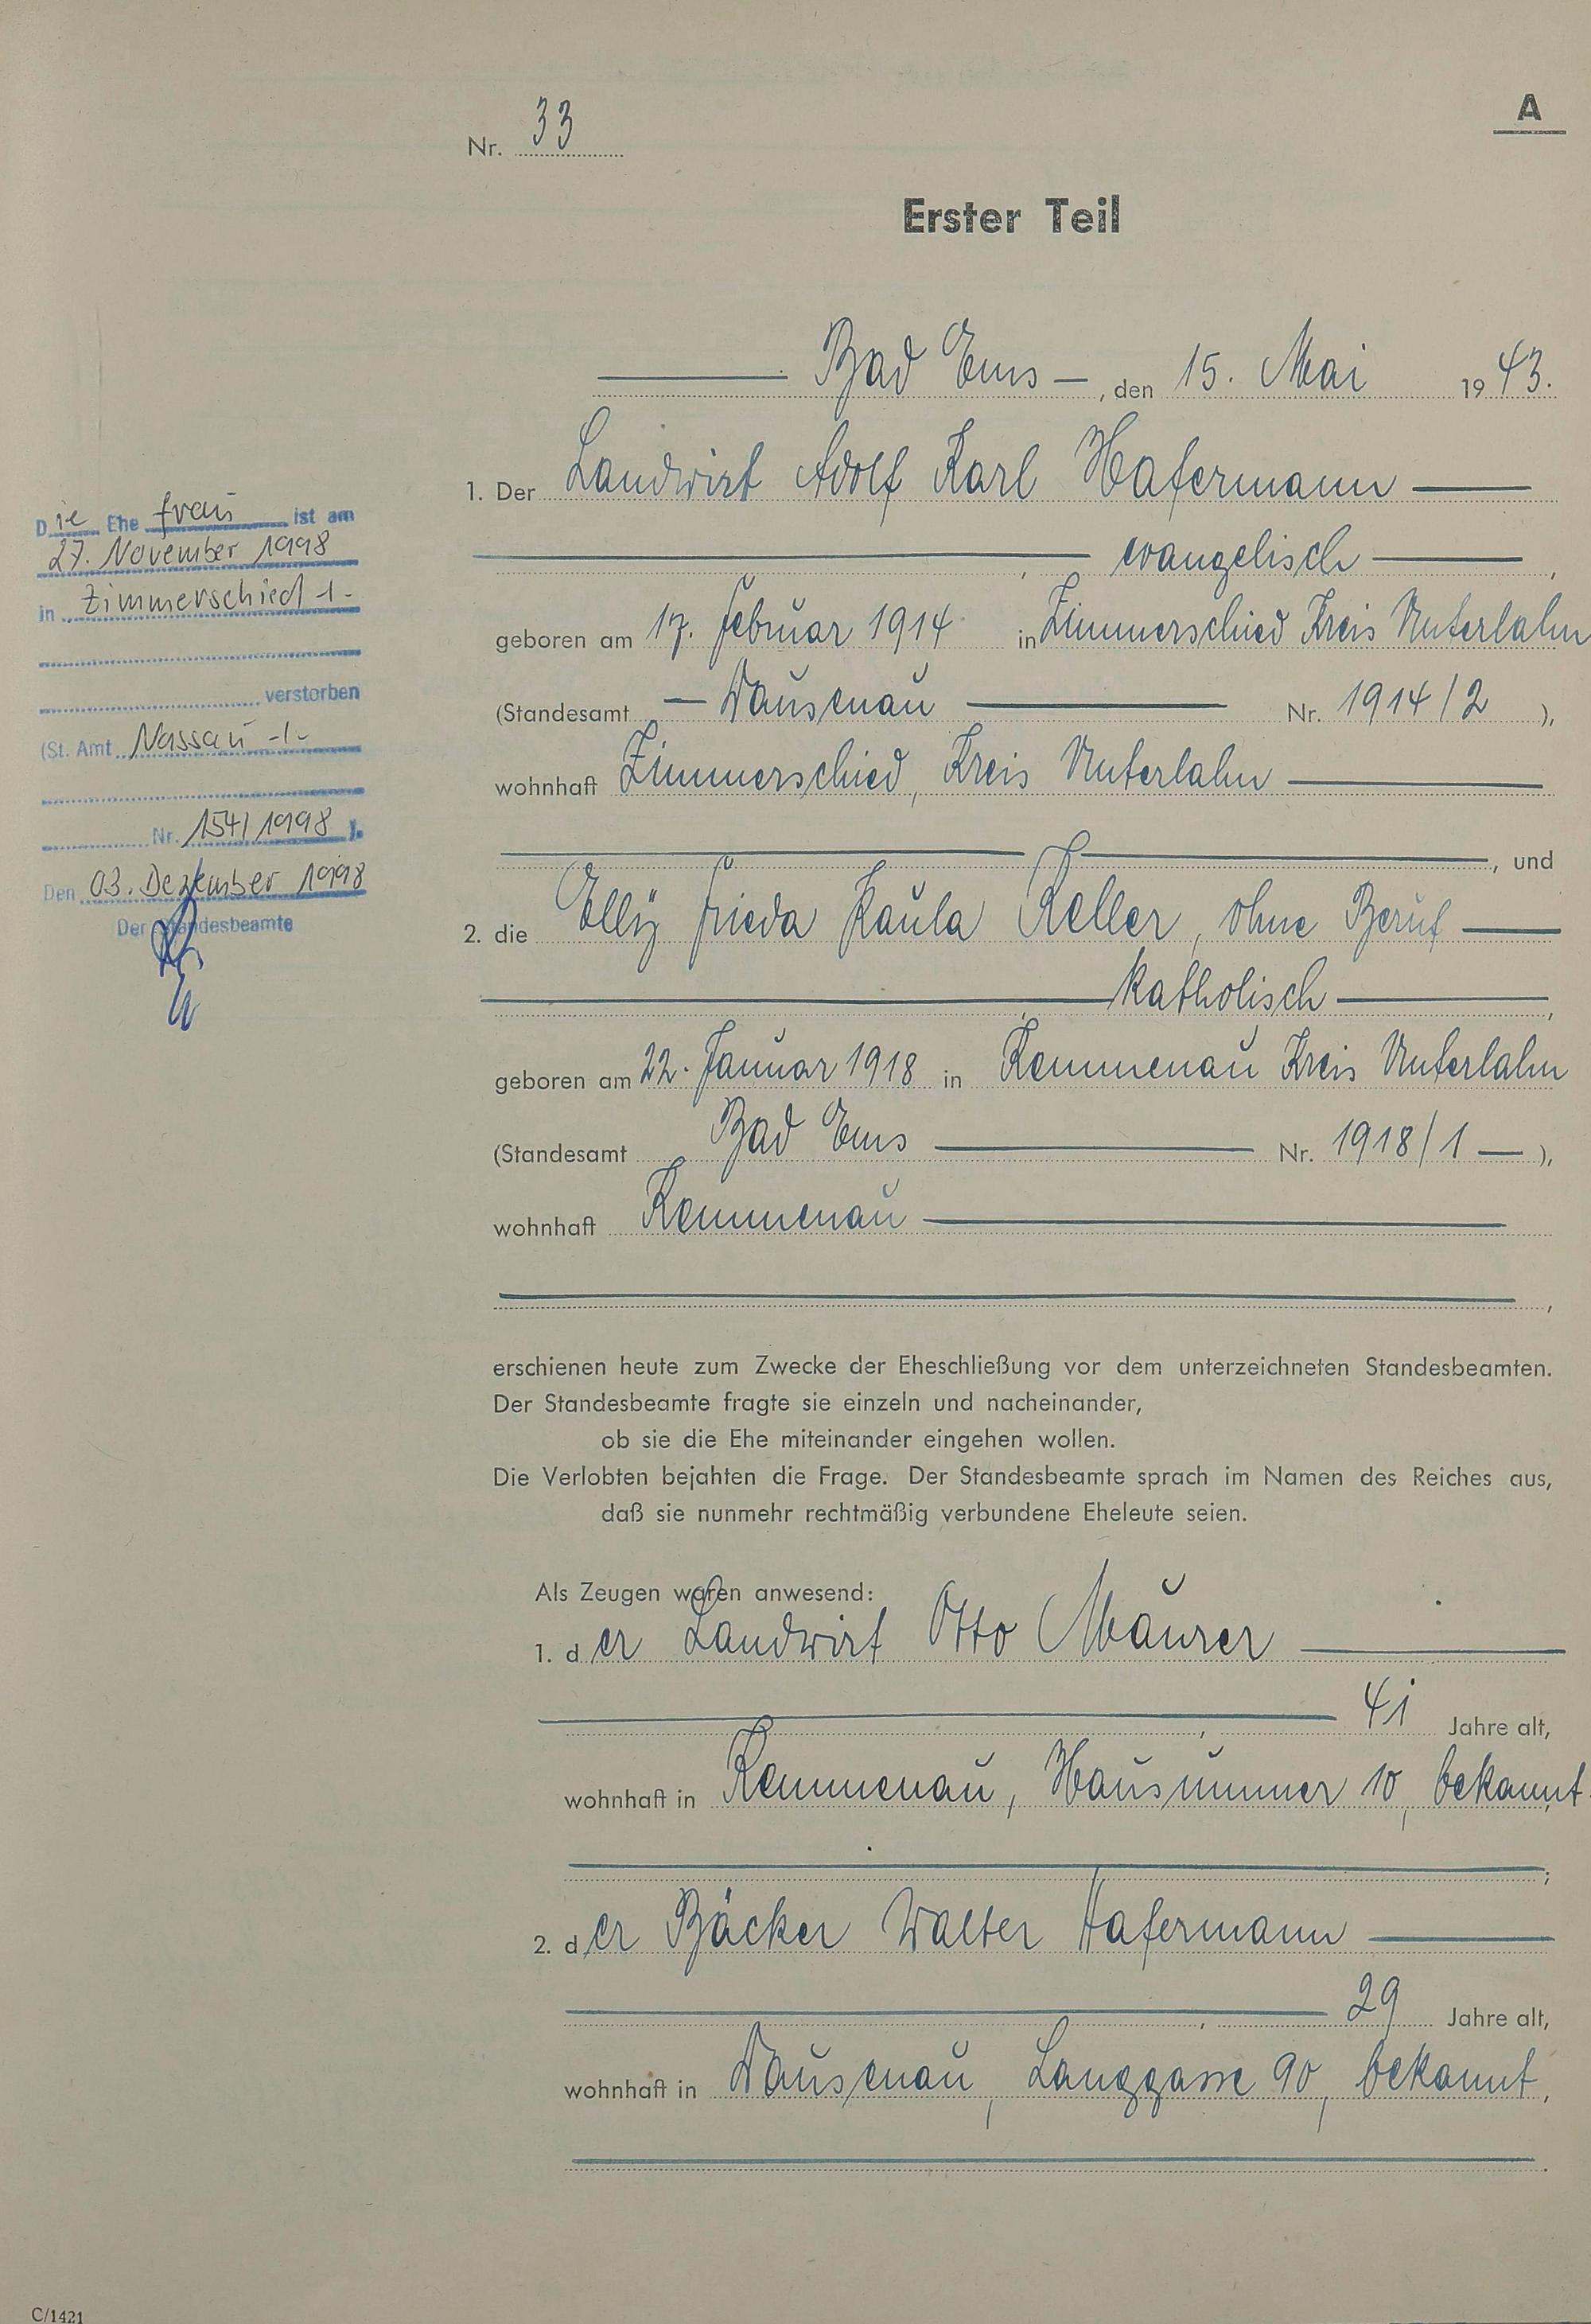 A
Nr. 33
Erster Teil
Bad Ems —, den 15. Mai 1943.
1. Der Landwirt Adolf Karl Hafermann
, evangelisch ,
geboren am 17. Februar 1914 in Zimmerschied Kreis Unterlahn
(Standesamt — Dausenau Nr. 1914/2 ),
wohnhaft Zimmerschied, Kreis Unterlahn
, und
2. die Elly Frieda Paula Keller, ohne Beruf
, katholisch ,
geboren am 22. Januar 1918 in Kemmenau Kreis Unterlahn
(Standesamt Bad Ems Nr. 1918/1 — ),
wohnhaft Kemmenau
,
erschienen heute zum Zwecke der Eheschließung vor dem unterzeichneten Standesbeamten.
Der Standesbeamte fragte sie einzeln und nacheinander,
ob sie die Ehe miteinander eingehen wollen.
Die Verlobten bejahten die Frage. Der Standesbeamte sprach im Namen des Reiches aus,
daß sie nunmehr rechtmäßig verbundene Eheleute seien.
Als Zeugen waren anwesend:
1. der Landwirt Otto Maurer
, 41 Jahre alt,
wohnhaft in Kemmenau, Hausnummer 10, bekannt
;
2. der Bäcker Walter Hafermann
, 29 Jahre alt,
wohnhaft in Dausenau, Langgasse 90, bekannt,
.
Die Ehefrau ist am
27. November 1998
in Zimmerschied -/-
verstorben
(St. Amt Nassau -/-
Nr. 154/1998 ).
Den 03. Dezember 1998
Der Standesbeamte
C/1421